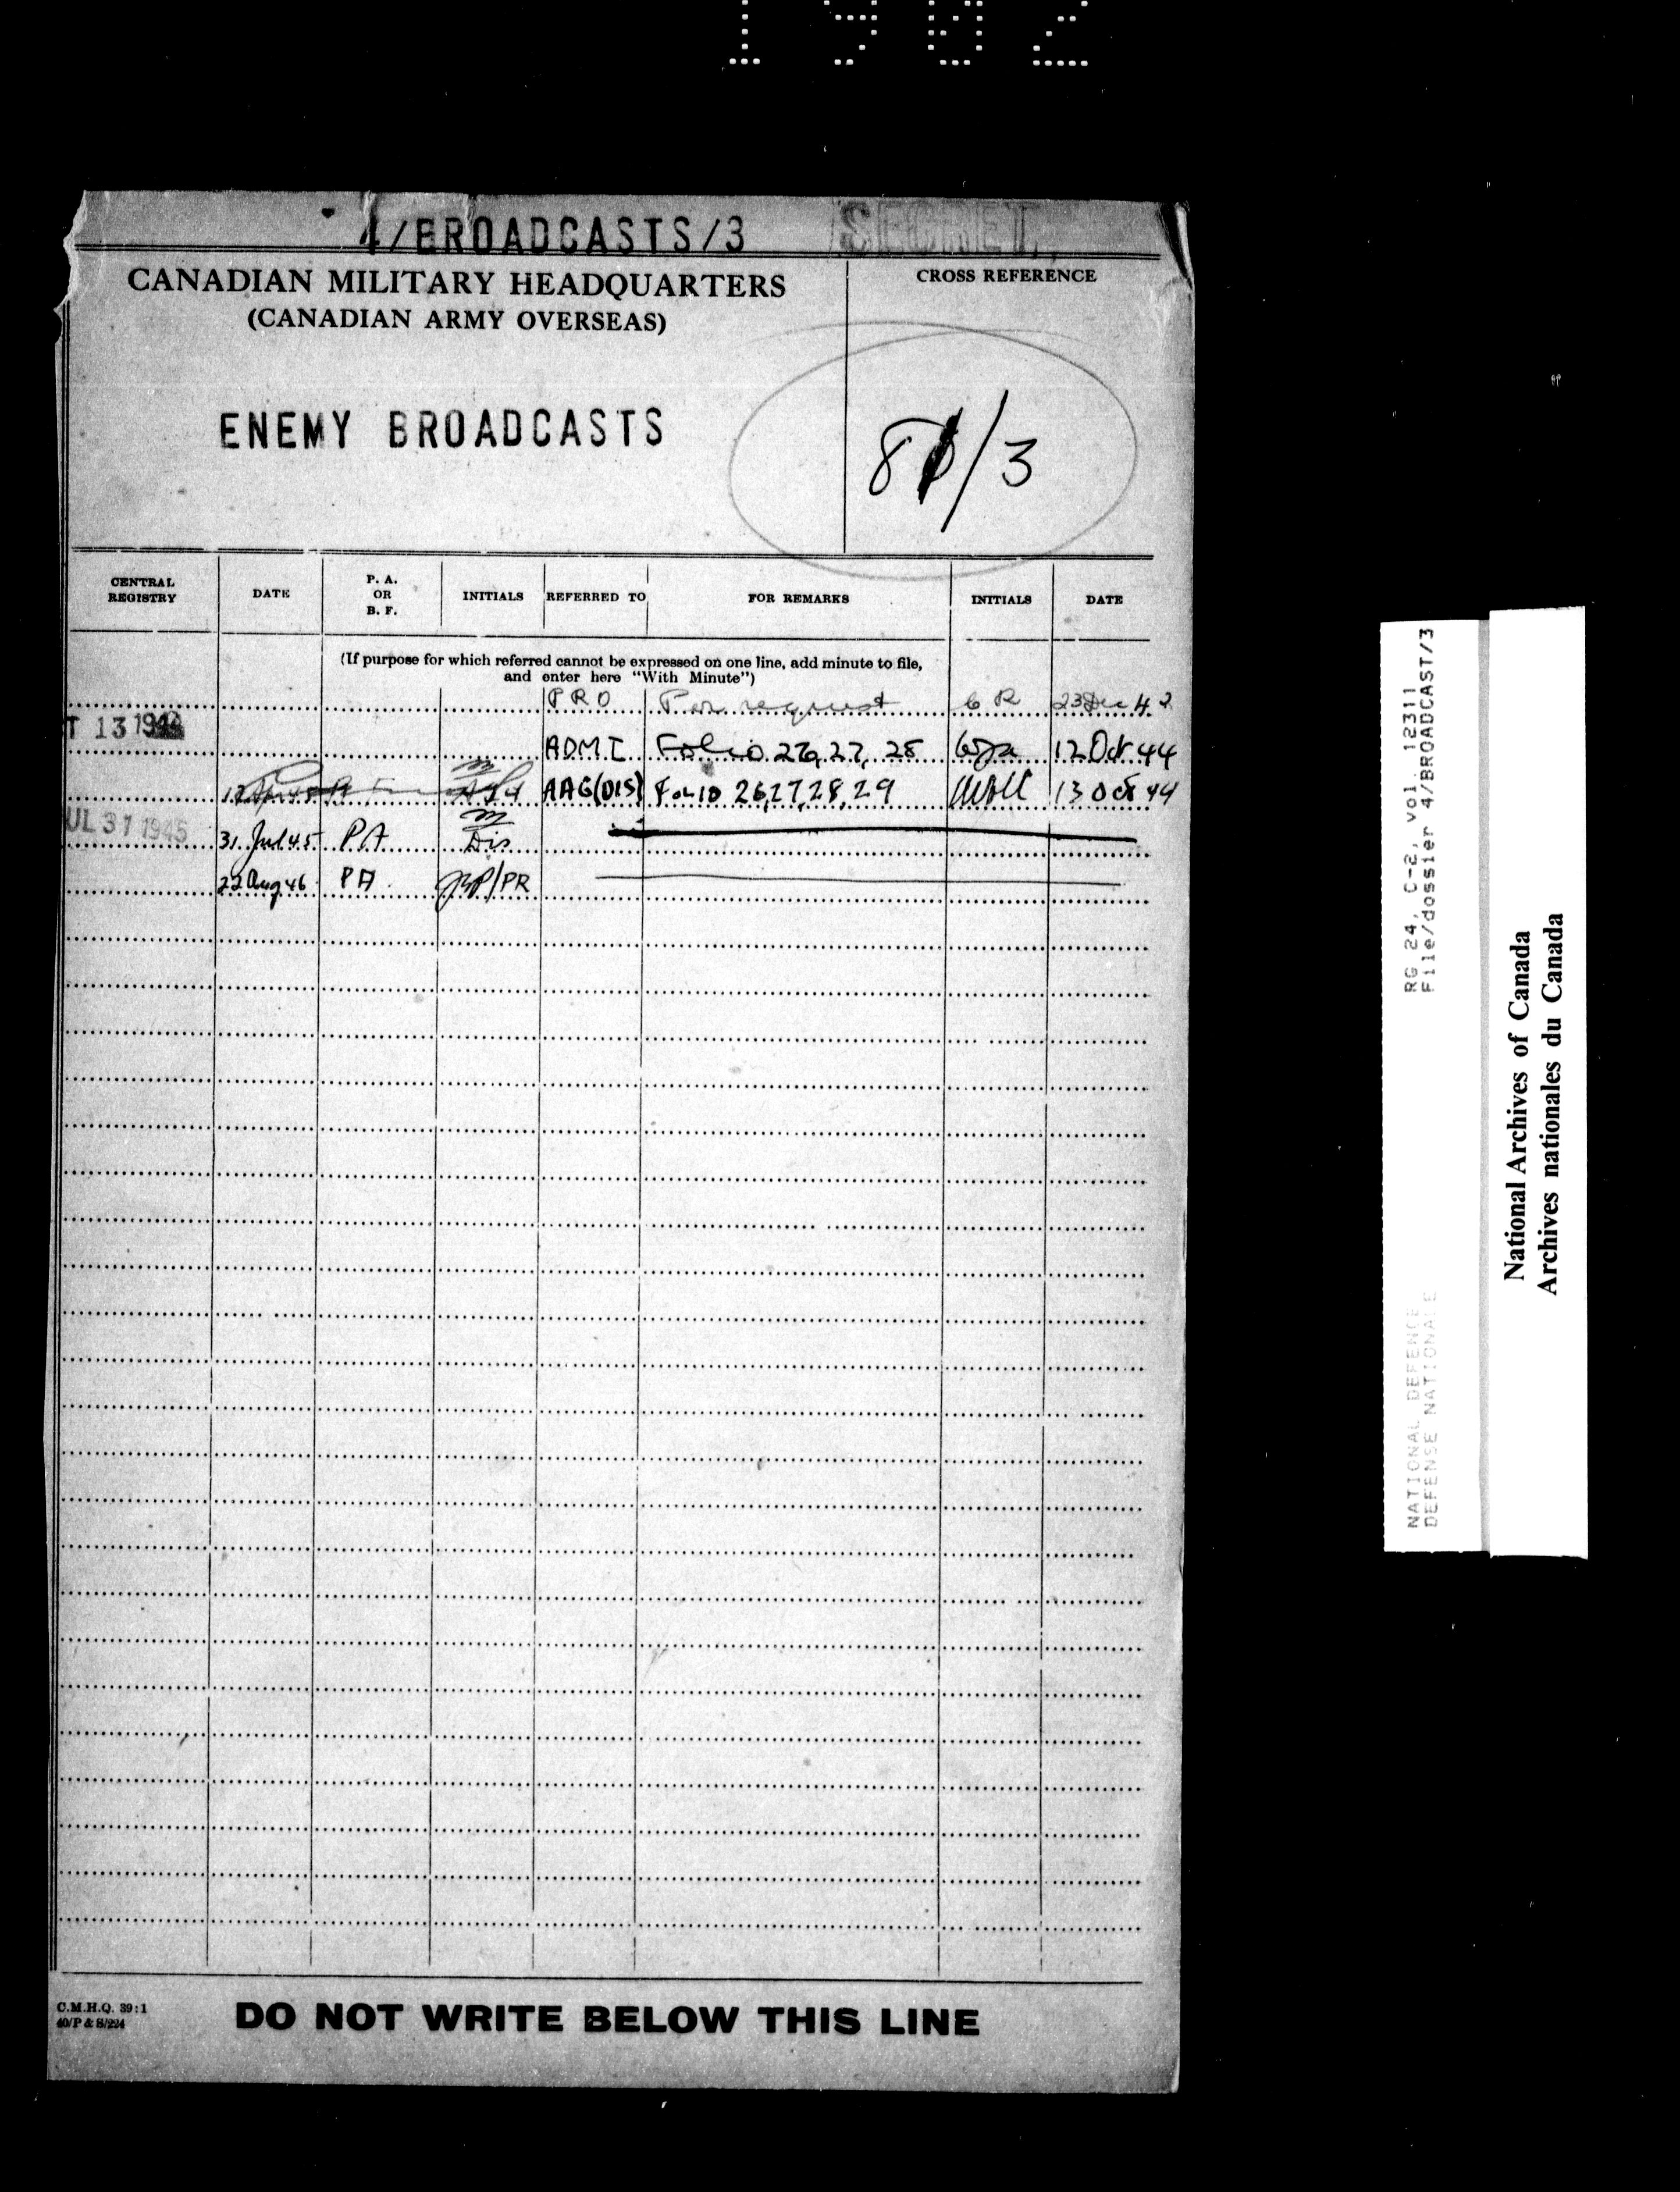 1902
4/BROADCASTS/3 SECRET
CANADIAN MILITARY HEADQUARTERS
(CANADIAN ARMY OVERSEAS)
CROSS REFERENCE
ENEMY BROADCASTS
81/3
CENTRAL REGISTRY DATE P. A. OR B. F. INITIALS REFERRED TO FOR REMARKS INITIALS DATE
(If purpose for which referred cannot be expressed on one line, add minute to file,
and enter here “With Minute”)
PRO Per request CR 23 Dec 42
T 13 1944
ADMI Folio 26, 27, 28 12 Oct 44
AAG(DIS) Folio 26,27,28,29 13 Oct 44
UL 31 1945
31 Jul 45 PA Dis
22 Aug 46 PA /PR
C.M.H.Q. 39:1
40/P & S/224
DO NOT WRITE BELOW THIS LINE
RG 24, C-2, vol. 12311
File/dossier 4/BROADCAST/3
NATIONAL DEFENCE
DEFENSE NATIONALE
National Archives of Canada
Archives nationales du Canada